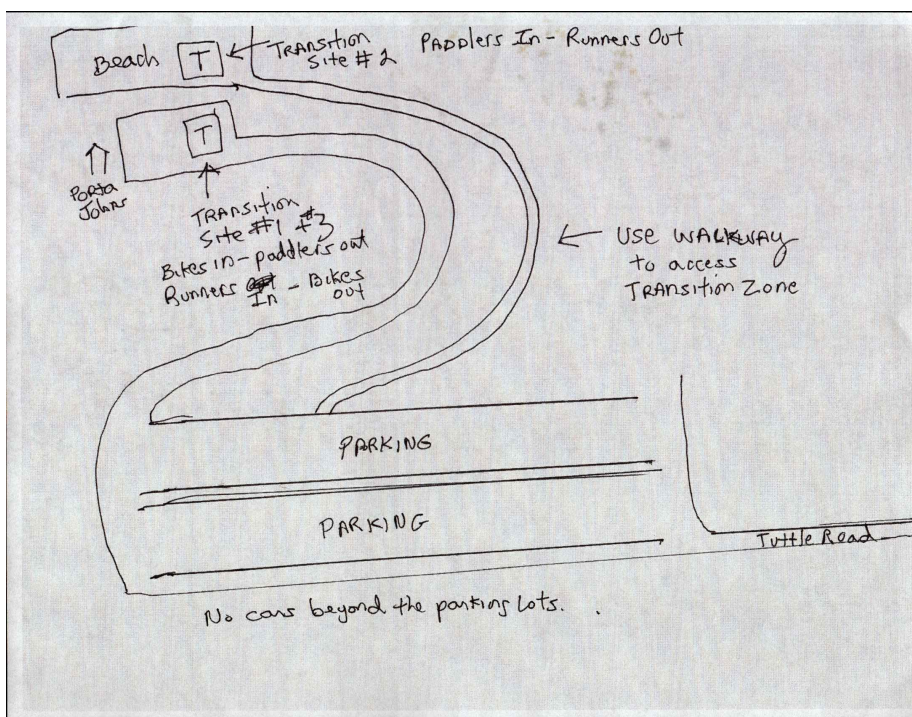 Beach
T
TRANSITION
Site # 2
PADDLERS In - Runners Out
T
PORTA
Johns
TRANSITION
Site #1 #3
Bikes in - paddlers out
Runners In - Bikes
out
USE WALKWAY
to access
TRANSITION Zone
PARKING
PARKING
Tuttle Road
No cars beyond the parking lots.